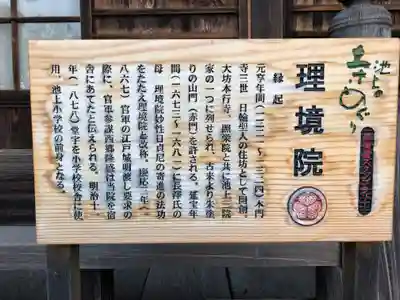 池上の
寺めぐり
理境院
縁起
元亨年間(一三二一~一三二四)本門
寺三世 日輪聖人の住坊として開創、
大坊本行寺、照栄院と共に池上三院
家の一つに列せられ、古来より朱塗
りの山門(赤門)を許される。延宝年
間(一六七三~一六八一)に長澤氏の
母 理境院妙性日貞尼の寄進の法功
をたたえ理境院と改称。慶応三年(一
八六七)官軍の江戸城明渡し要求の
際に、官軍参謀西郷隆盛は当院を宿
舎にあてたと伝えられる。明治十一
年(一八七八)堂宇を小学校校舎に使
用、池上小学校の前身となる。